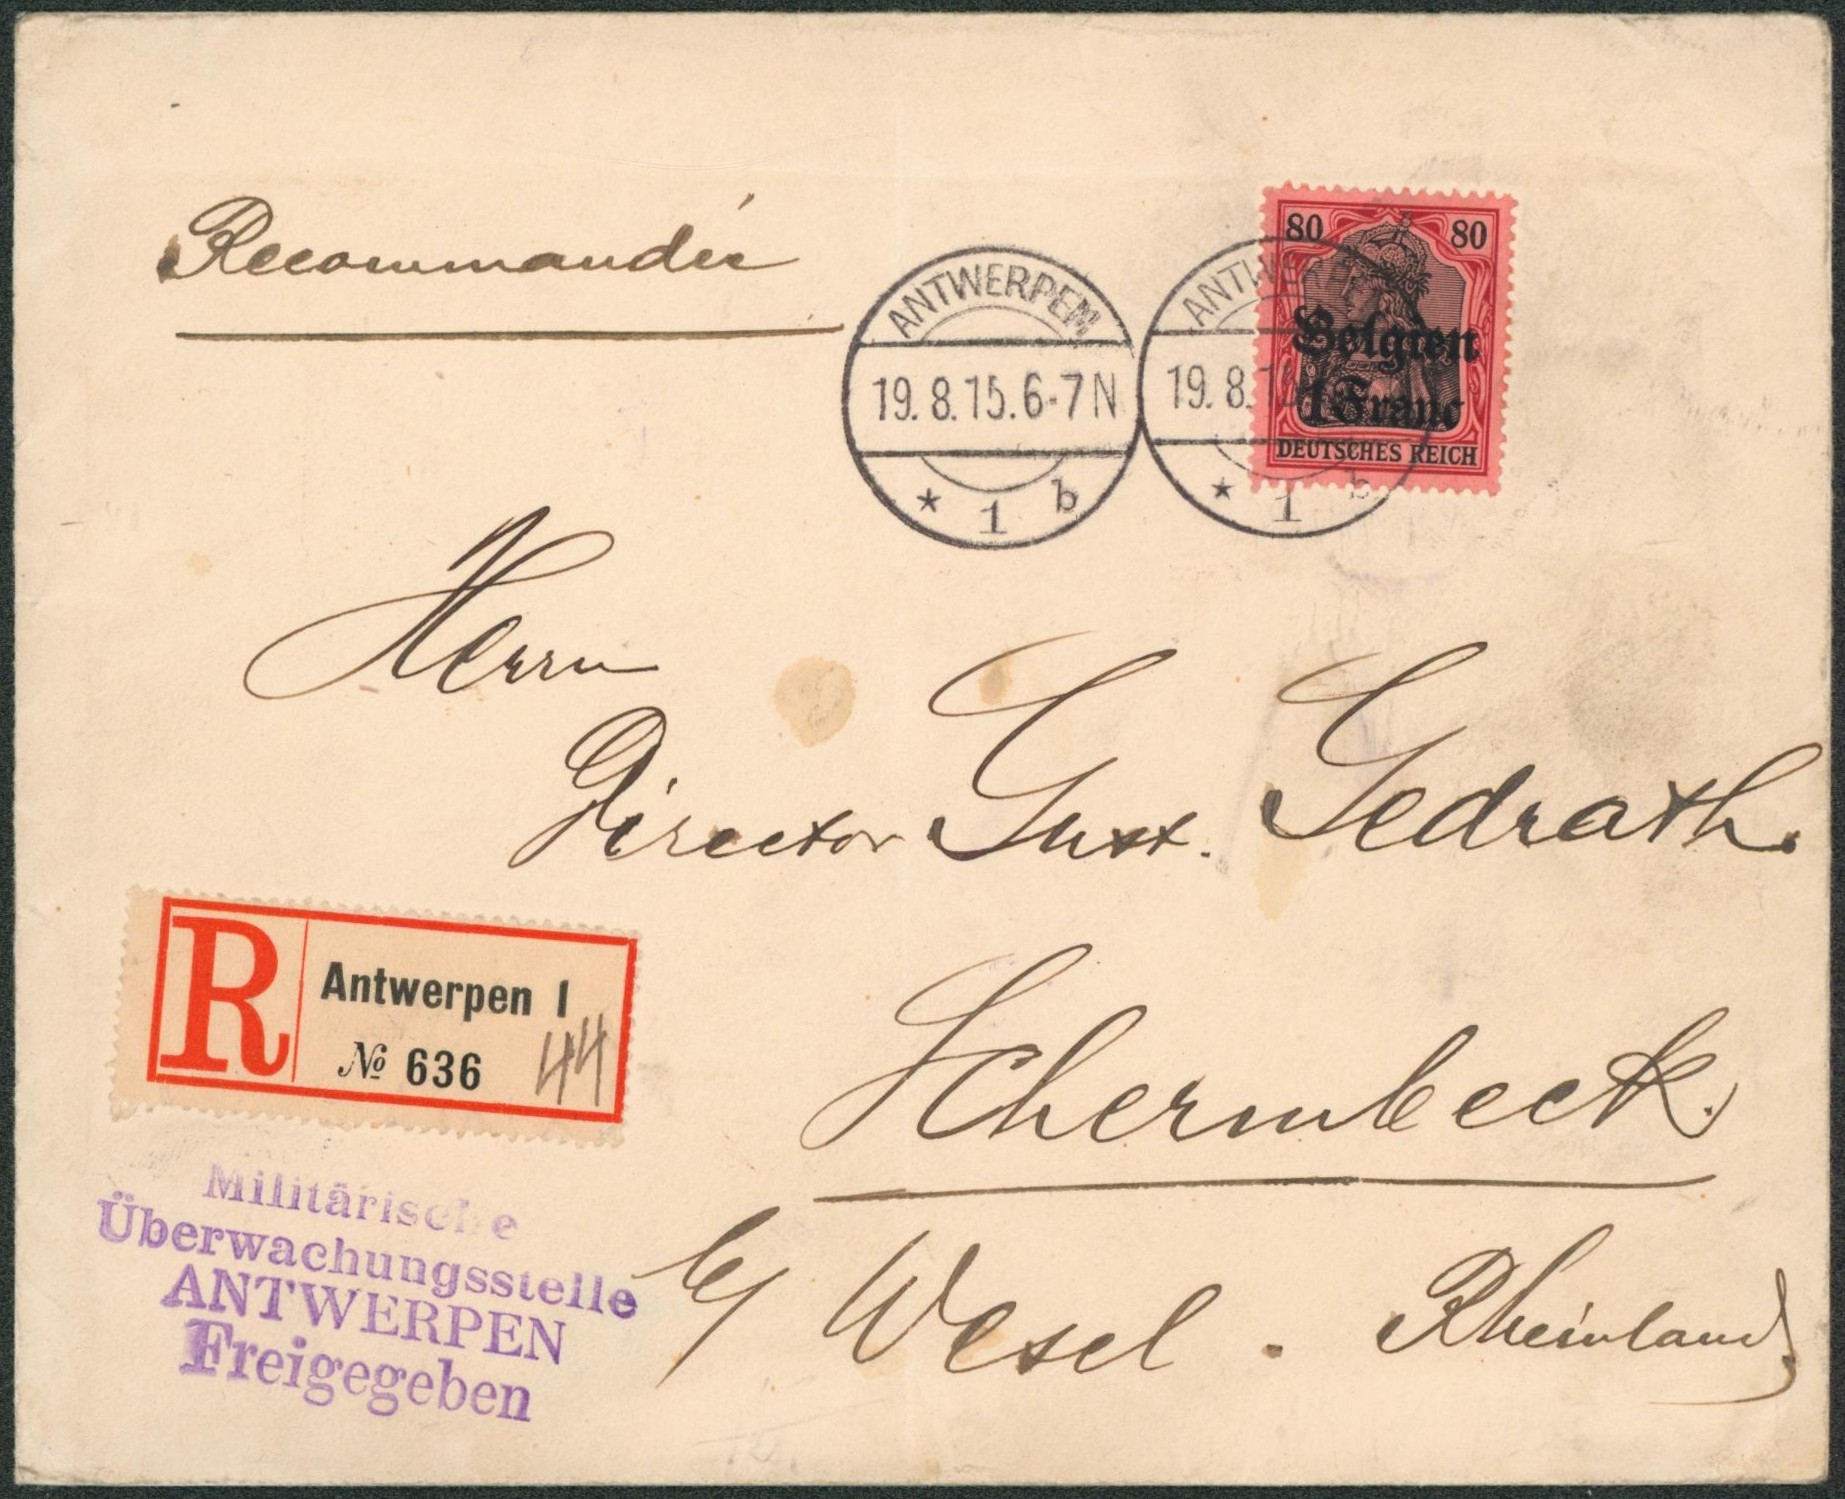 Recommandée
ANTWERPEN
19.8.15.6-7N
* 1 b
ANTWERPEN
19.8.15
* 1 b
80 80
Belgien
1 Franc
DEUTSCHES REICH
Herrn
Director Gust. Gedrath.
Schermbeck.
b/ Wesel. Rheinland
R
Antwerpen 1
№ 636
44
Militärische
Überwachungsstelle
ANTWERPEN
Freigegeben